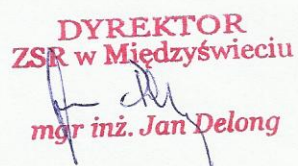 DYREKTOR
ZSR w Międzyświeciu
mgr inż. Jan Delong